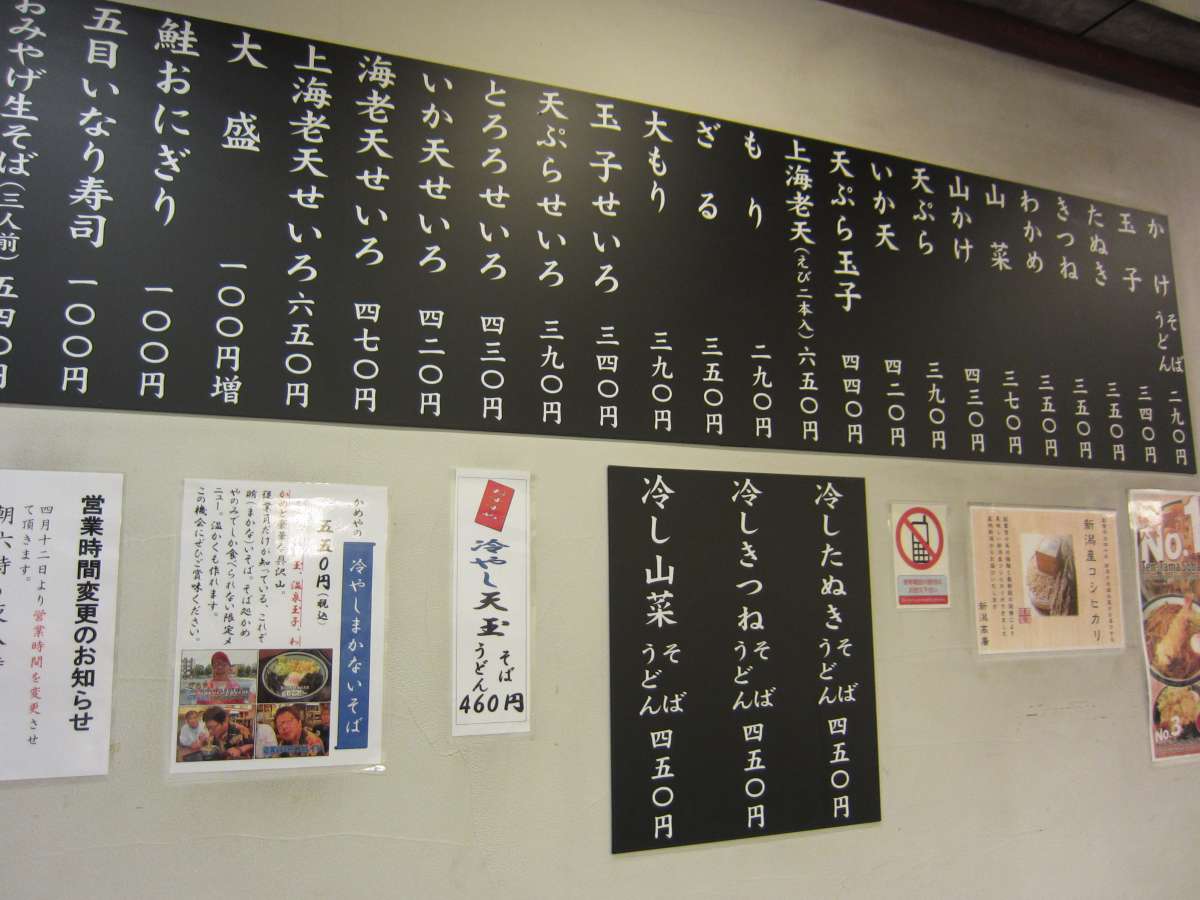 かけ そば うどん 二九〇円
玉子 三四〇円
たぬき 三五〇円
きつね 三五〇円
わかめ 三五〇円
山菜 三七〇円
山かけ 四三〇円
天ぷら 三九〇円
いか天 四二〇円
天ぷら玉子 四四〇円
上海老天(えび二本入)六五〇円
もり 二九〇円
ざる 三五〇円
大もり 三九〇円
玉子せいろ 三四〇円
天ぷらせいろ 三九〇円
とろろせいろ 四三〇円
いか天せいろ 四二〇円
海老天せいろ 四七〇円
上海老天せいろ 六五〇円
大盛 一〇〇円増
鮭おにぎり 一〇〇円
五目いなり寿司 一〇〇円
おみやげ生そば(三人前)五四〇円
No.1
No.3
新潟産コシヒカリ
新潟茶庵
冷したぬき そば うどん 四五〇円
冷しきつね そば うどん 四五〇円
冷し山菜 そば うどん 四五〇円
かめや
冷やし天玉 そば うどん
460円
かめやの
冷やしまかないそば
五五〇円(税込)
従業員だけが知っている、これぞ
賄(まかない)いそば。そば処かめ
やのみでしか食べられない限定メ
ニュー。温かくも作れます。
この機会にぜひご賞味ください。
営業時間変更のお知らせ
四月十二日より営業時間を変更させ
て頂きます。
朝六時